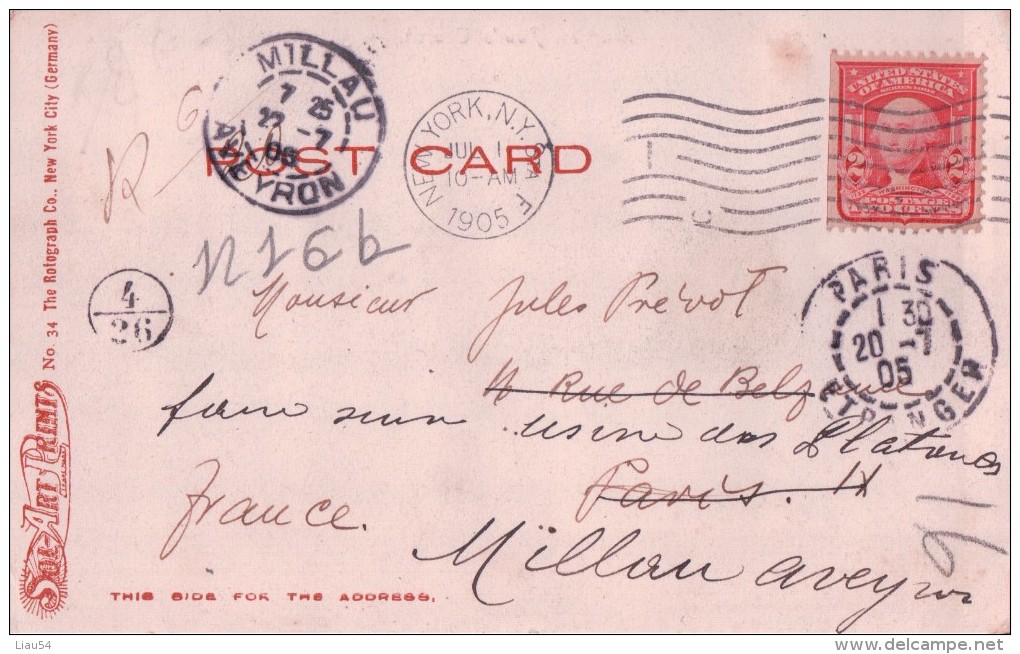 MILLAU
7 25
22 -7
05
AVEYRON
NEW YORK, N.Y. STA. F
JUL 1
10-AM
1905
UNITED STATES
OF AMERICA
SERIES 1902
2 2
WASHINGTON
POSTAGE
TWO CENTS
POST CARD
R
N 166
4
26
Monsieur Jules Prévot
4 Rue de Belzunce
faire suivre usine des Platanes
Paris.
France.
Millau aveyron
91
PARIS
1 30
20 -7
05
ETRANGER
THIS SIDE FOR THE ADDRESS.
SOL-ART PRINTS No. 34 The Rotograph Co., New York City (Germany)
Liau54
delcampe.net